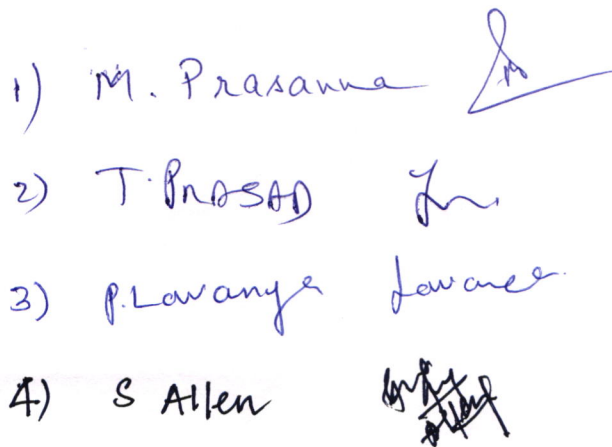 1) M. Prasanna
2) T. PRASAD
3) P. Lavanya
4) S Allen